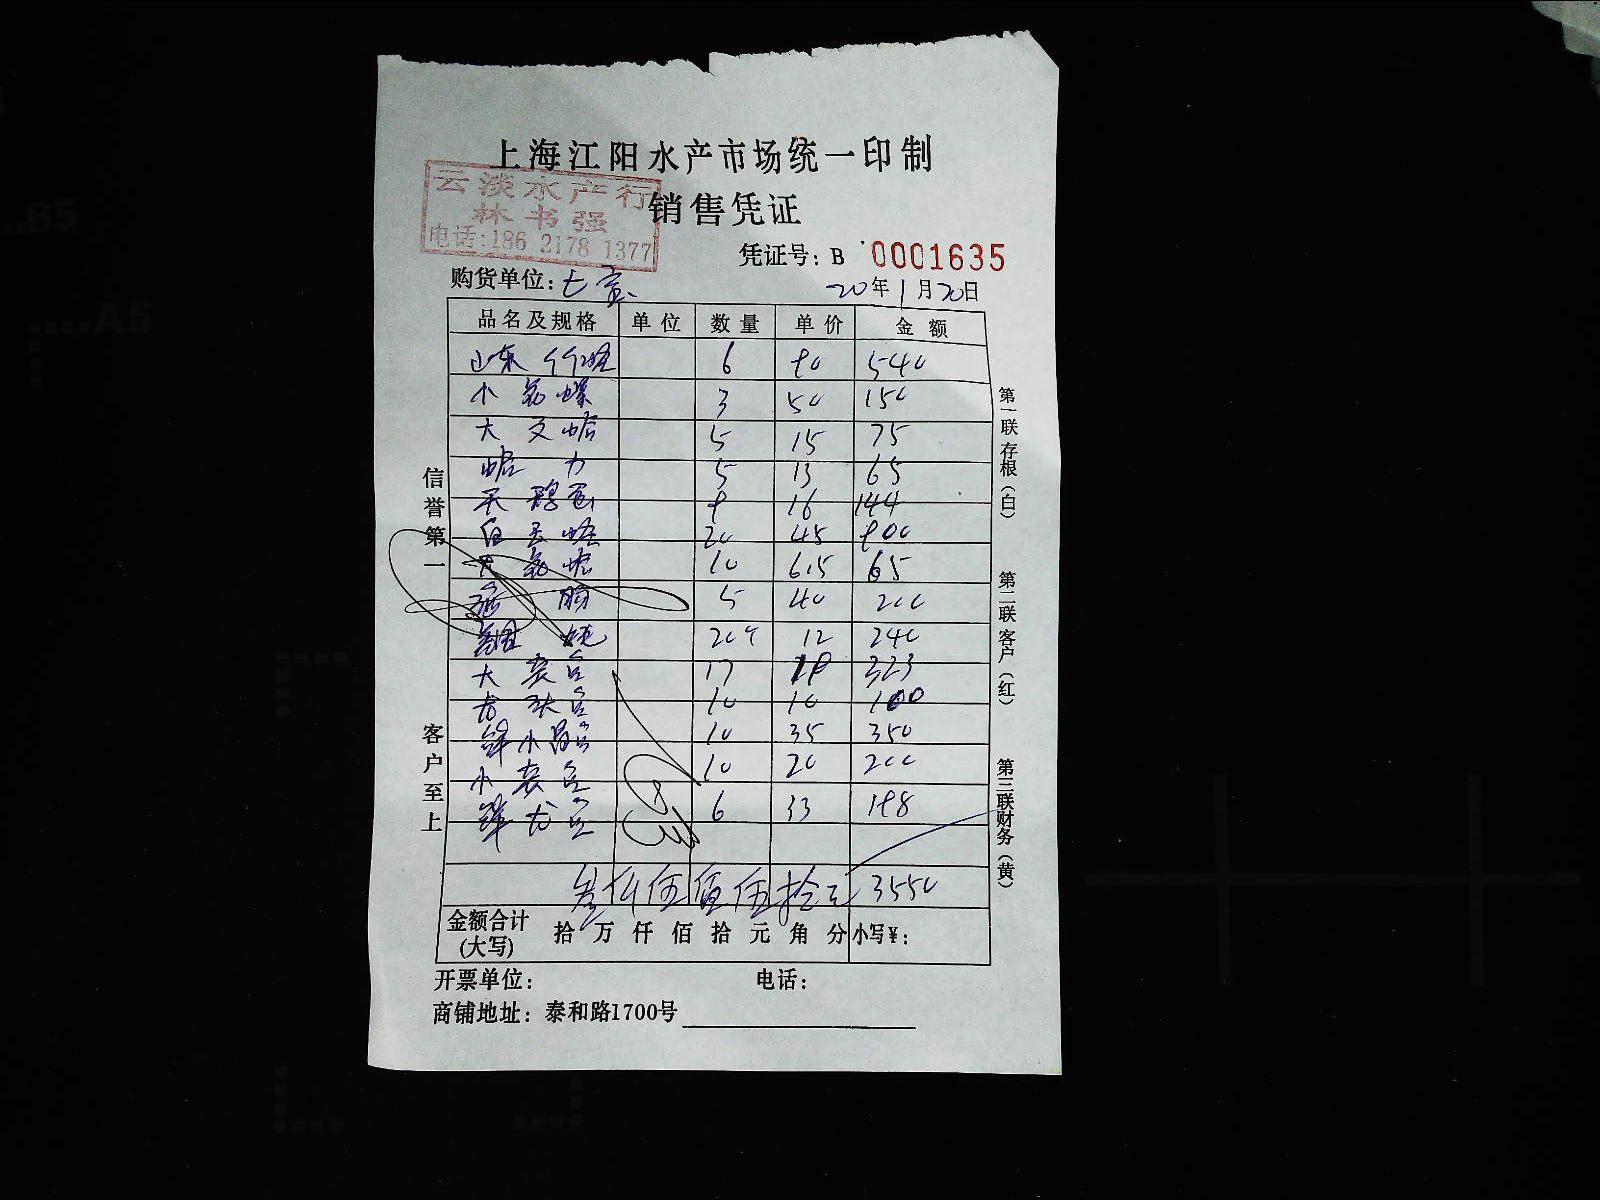 上海江阳水产市场统一印制
云淡水产行
林书强
电话:186 2178 1377
销售凭证
凭证号: B 0001635
购货单位: 七宝
20年1月20日
品名及规格 单位 数量 单价 金额
山东竹蛏 6 90 540
小 螺 3 50 150
大文蛤 5 15 75
蛤力 5 13 65
天鹅蛋 9 16 144
白玉蛏 20 45 900
大 蛤 10 6.5 65
5 40 200
20 12 240
大 17 19 323
10 10 100
鲜小 10 35 350
小 10 20 200
鲜 6 33 198
叁仟伍佰伍拾元 3550
金额合计
(大写)
拾 万 仟 佰 拾 元 角 分 小写¥:
开票单位: 电话:
商铺地址: 泰和路1700号
信誉第一
客户至上
第一联 存根(白)
第二联 客户(红)
第三联 财务(黄)